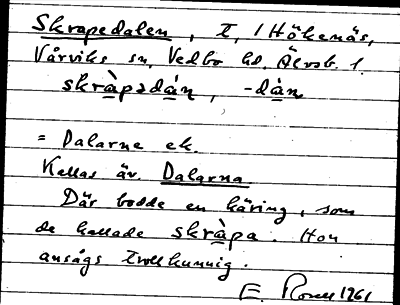 Skrapedalen, t, / Hökenäs,
Vårviks sn, Vedbo hd. Älvsb. l.
skràpədán, -dán
= Dalarne ek.
Kallas äv. Dalarna
Där bodde en käring, som
de kallade skràpa. Hon
ansågs trollkunnig.
E. 1961